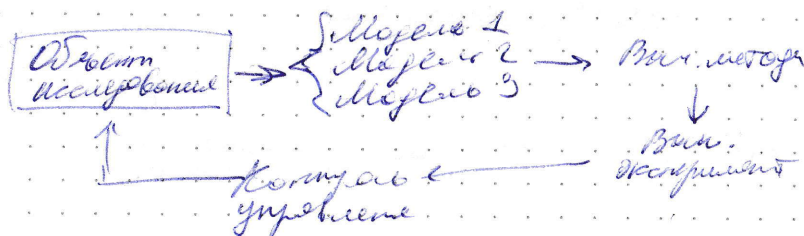 Объект
исследования
Модель 1
Модель 2
Модель 3
Выч. метода
Выч.
эксперимент
Контроль
управления